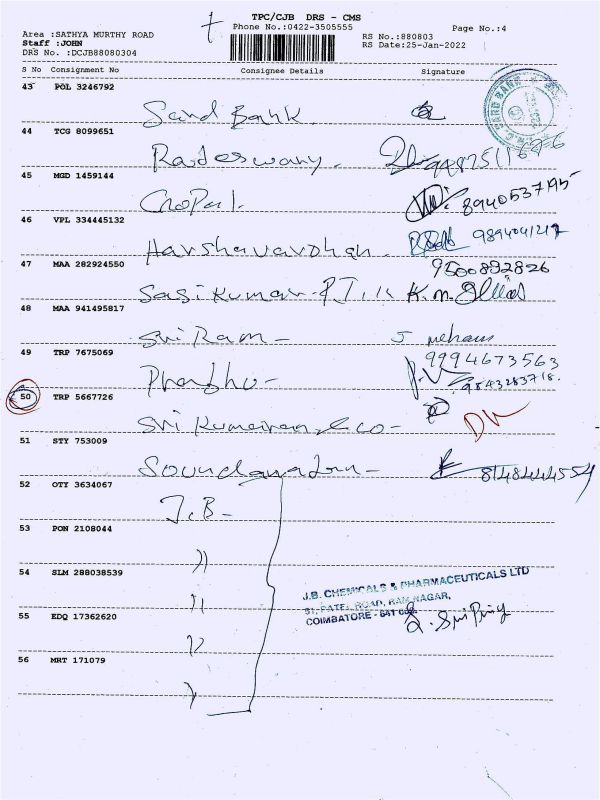 TPC/CJB DRS - CMS
Phone No.:0422-3505555
Page No.:4
Area :SATHYA MURTHY ROAD
Staff :JOHN
DRS No. :DCJB88080304
RS No.:880803
RS Date:25-Jan-2022
S No Consignment No Consignee Details Signature
43 POL 3246792
Sard Bank.
44 TCG 8099651
Rajeswary.
45 MGD 1459144
Gopal. 8940537195
46 VPL 334445132
Harshavardhan.
47 MAA 282924550
9500892826
Sasikumar K.m.
48 MAA 941495817
Sri Ram-
49 TRP 7675069
9994673563
Prabhu- 9843283718.
50 TRP 5667726
Sri Kumaran & co-
51 STY 753009
8148444554
52 OTY 3634067
J.B-
53 PON 2108044
"
54 SLM 288038539
"
J.B. CHEMICALS & PHARMACEUTICALS LTD
51, PATEL ROAD, RAM NAGAR,
COIMBATORE - 641
55 EDQ 17362620
"
56 MRT 171079
"